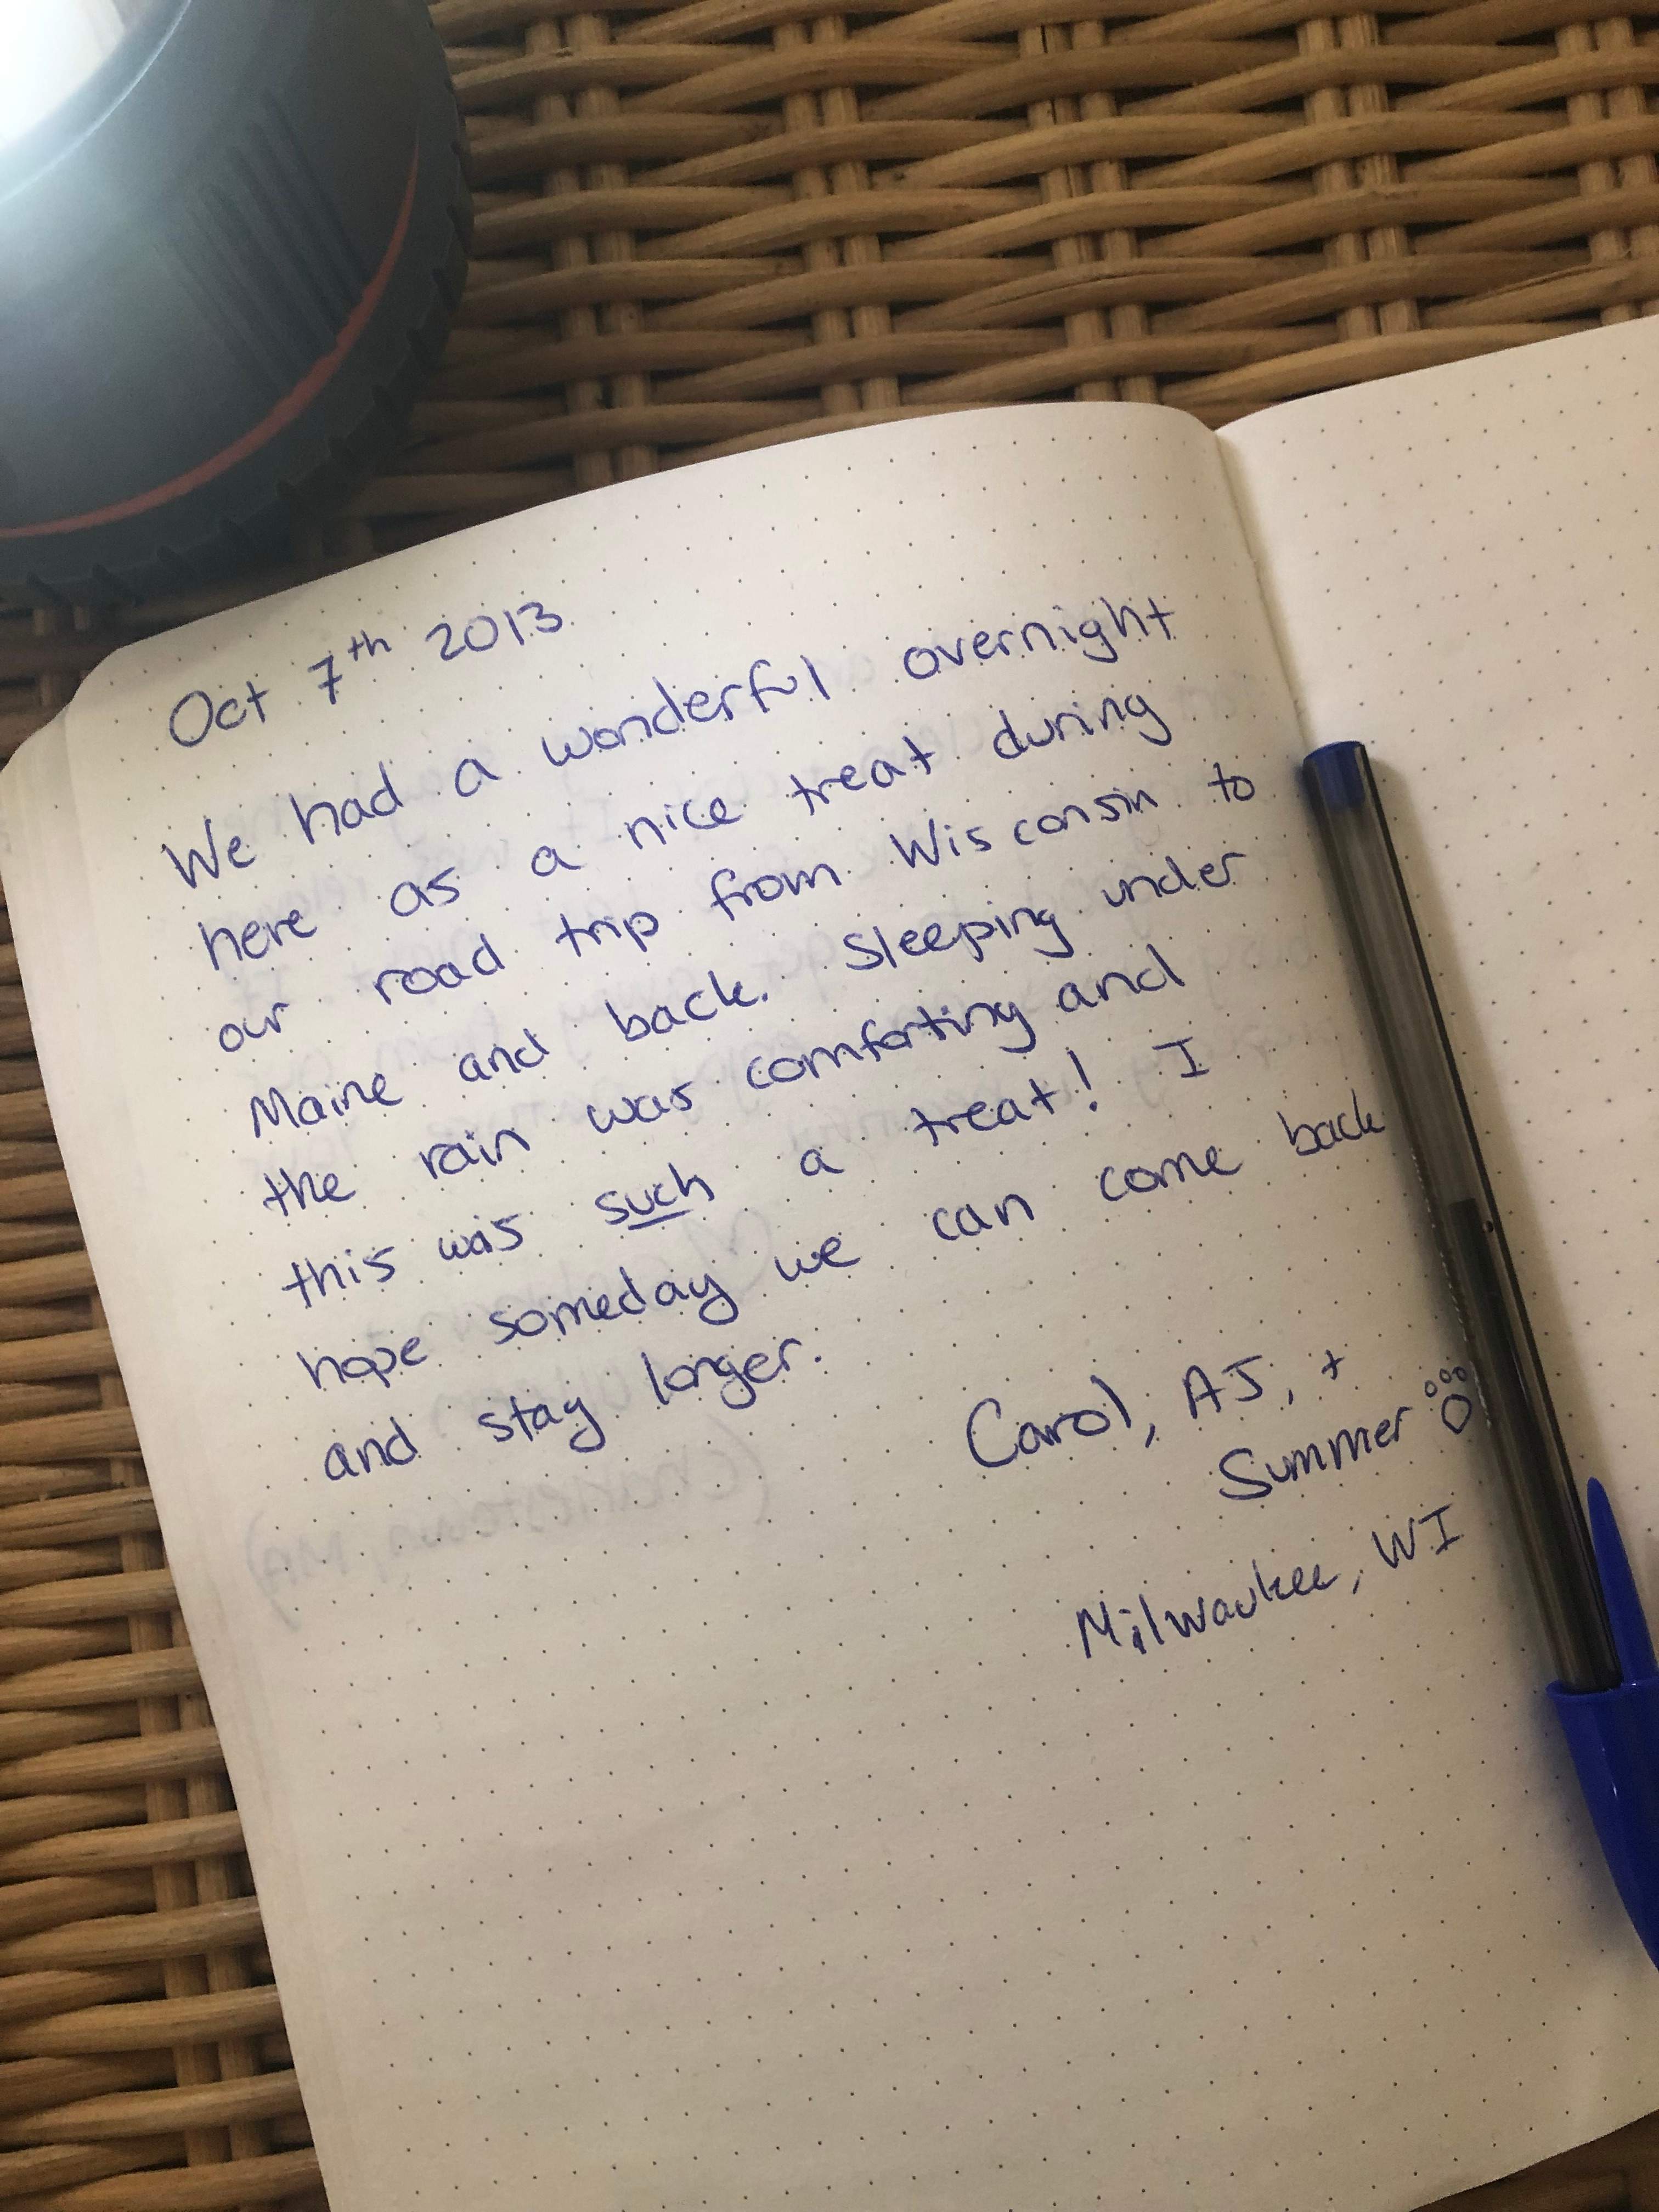 Oct 7th 2013
We had a wonderful overnight
here as a nice treat during
our road trip from Wisconsin to
Maine and back. Sleeping under
the rain was comforting and
this was such a treat! I
hope someday we can come back
and stay longer.
Carol, AJ, +
Summer
Milwaukee, WI
(Charlestown, MA)